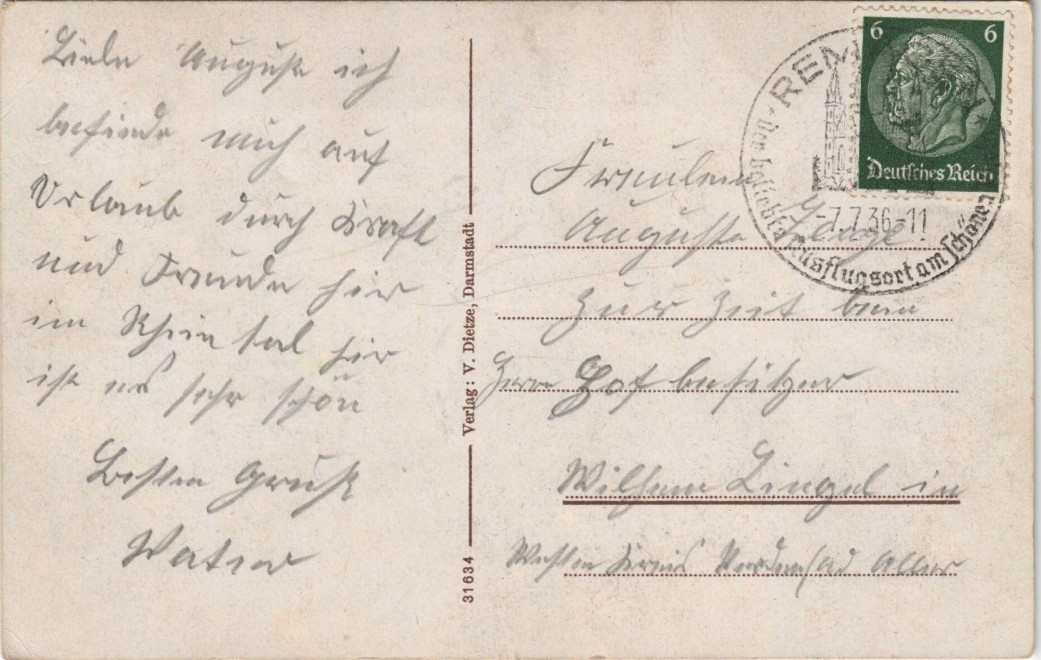 Liebe Auguste ich
befinde mich auf
Urlaub durch Kraft
und Freude hir
im Rhein tal hir
ist es sehr schön
Besten Gruß
Vater
Verlag: V. Dietze, Darmstadt
31634
6 6
Deutsches Reich
REM
-7.7.36-11
Der beliebte Ausflugsort am schönen
Fräulein
Auguste
zur Zeit beim
Herrn Hofbesitzer
Wilhelm Lingel in
Westen Kreis Verden ad Aller